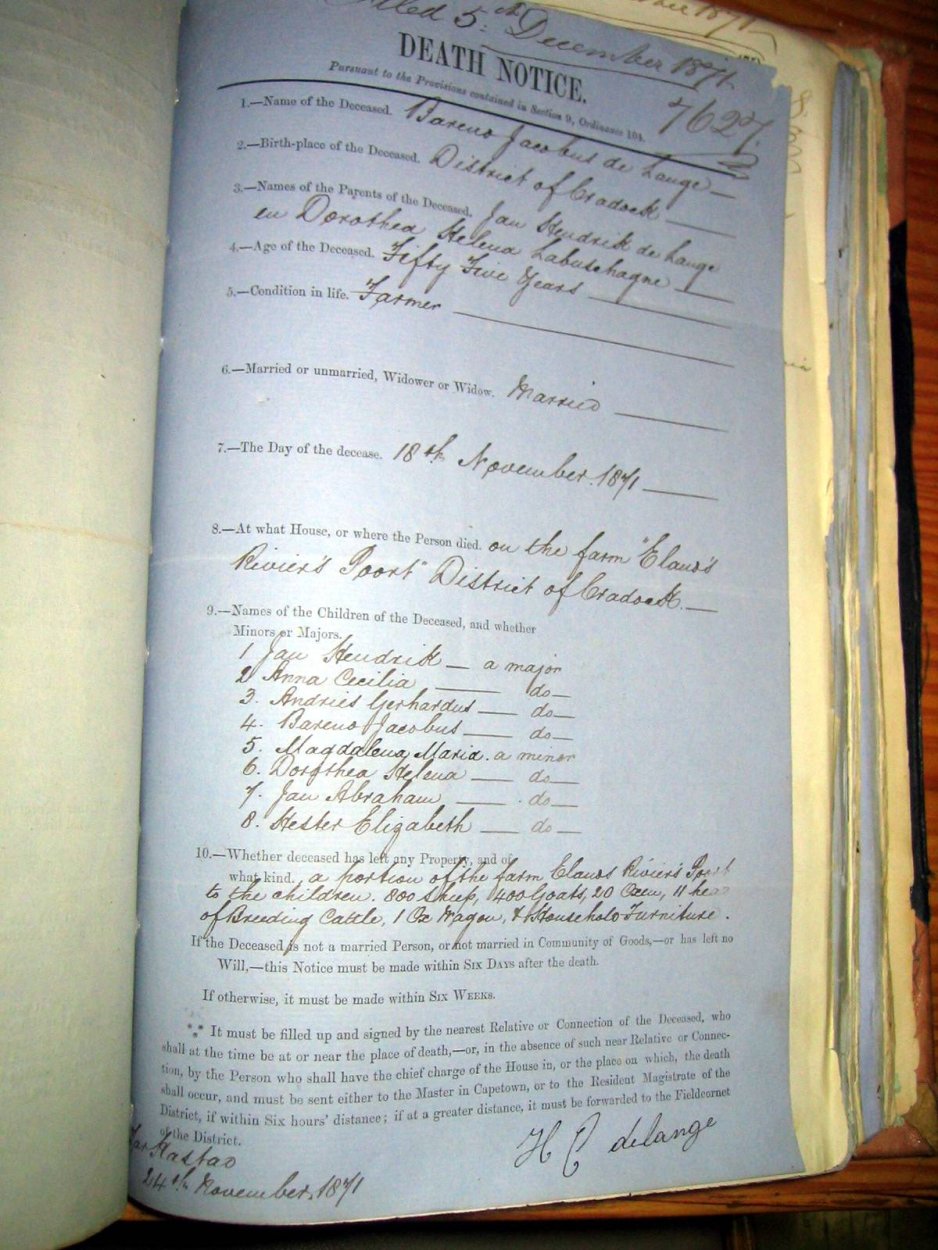 Filed 5th December 1871.
DEATH NOTICE.
Pursuant to the Provisions contained in Section 9, Ordinance 104.
7627.
1.—Name of the Deceased. Barend Jacobus de Lange —
2.—Birth-place of the Deceased. District of Cradock —
3.—Names of the Parents of the Deceased. Jan Hendrik de Lange
en Dorothea Helena Labuschagne —
4.—Age of the Deceased. Fifty Five Years —
5.—Condition in life. Farmer —
6.—Married or unmarried, Widower or Widow. Married —
7.—The Day of the decease. 18th November. 1871 —
8.—At what House, or where the Person died. on the farm "Elands
Rivier's Poort" District of Cradock. —
9.—Names of the Children of the Deceased, and whether
Minors or Majors.
1 Jan Hendrik — a major
2 Anna Cecilia — do —
3. Andries Gerhardus — do —
4. Barend Jacobus — do —
5. Magdalena Maria. a minor
6. Dorothea Helena — do —
7. Jan Abraham — do —
8. Hester Elizabeth — do —
10.—Whether deceased has left any Property, and of
what kind. a portion of the farm Elands Rivier's Poort
to the children. 800 Sheep, 400 Goats, 20 Oxen, 11 hea
of Breeding Cattle, 1 Ox Wagon, & Household Furniture.
If the Deceased is not a married Person, or not married in Community of Goods,—or has left no
Will,—this Notice must be made within SIX DAYS after the death.
If otherwise, it must be made within SIX WEEKS.
*** It must be filled up and signed by the nearest Relative or Connection of the Deceased, who
shall at the time be at or near the place of death,—or, in the absence of such near Relative or Connec-
tion, by the Person who shall have the chief charge of the House in, or the place on which, the death
shall occur, and must be sent either to the Master in Capetown, or to the Resident Magistrate of the
District, if within Six hours' distance; if at a greater distance, it must be forwarded to the Fieldcornet
of the District.
H C delange
Tarkastad
24th November. 1871